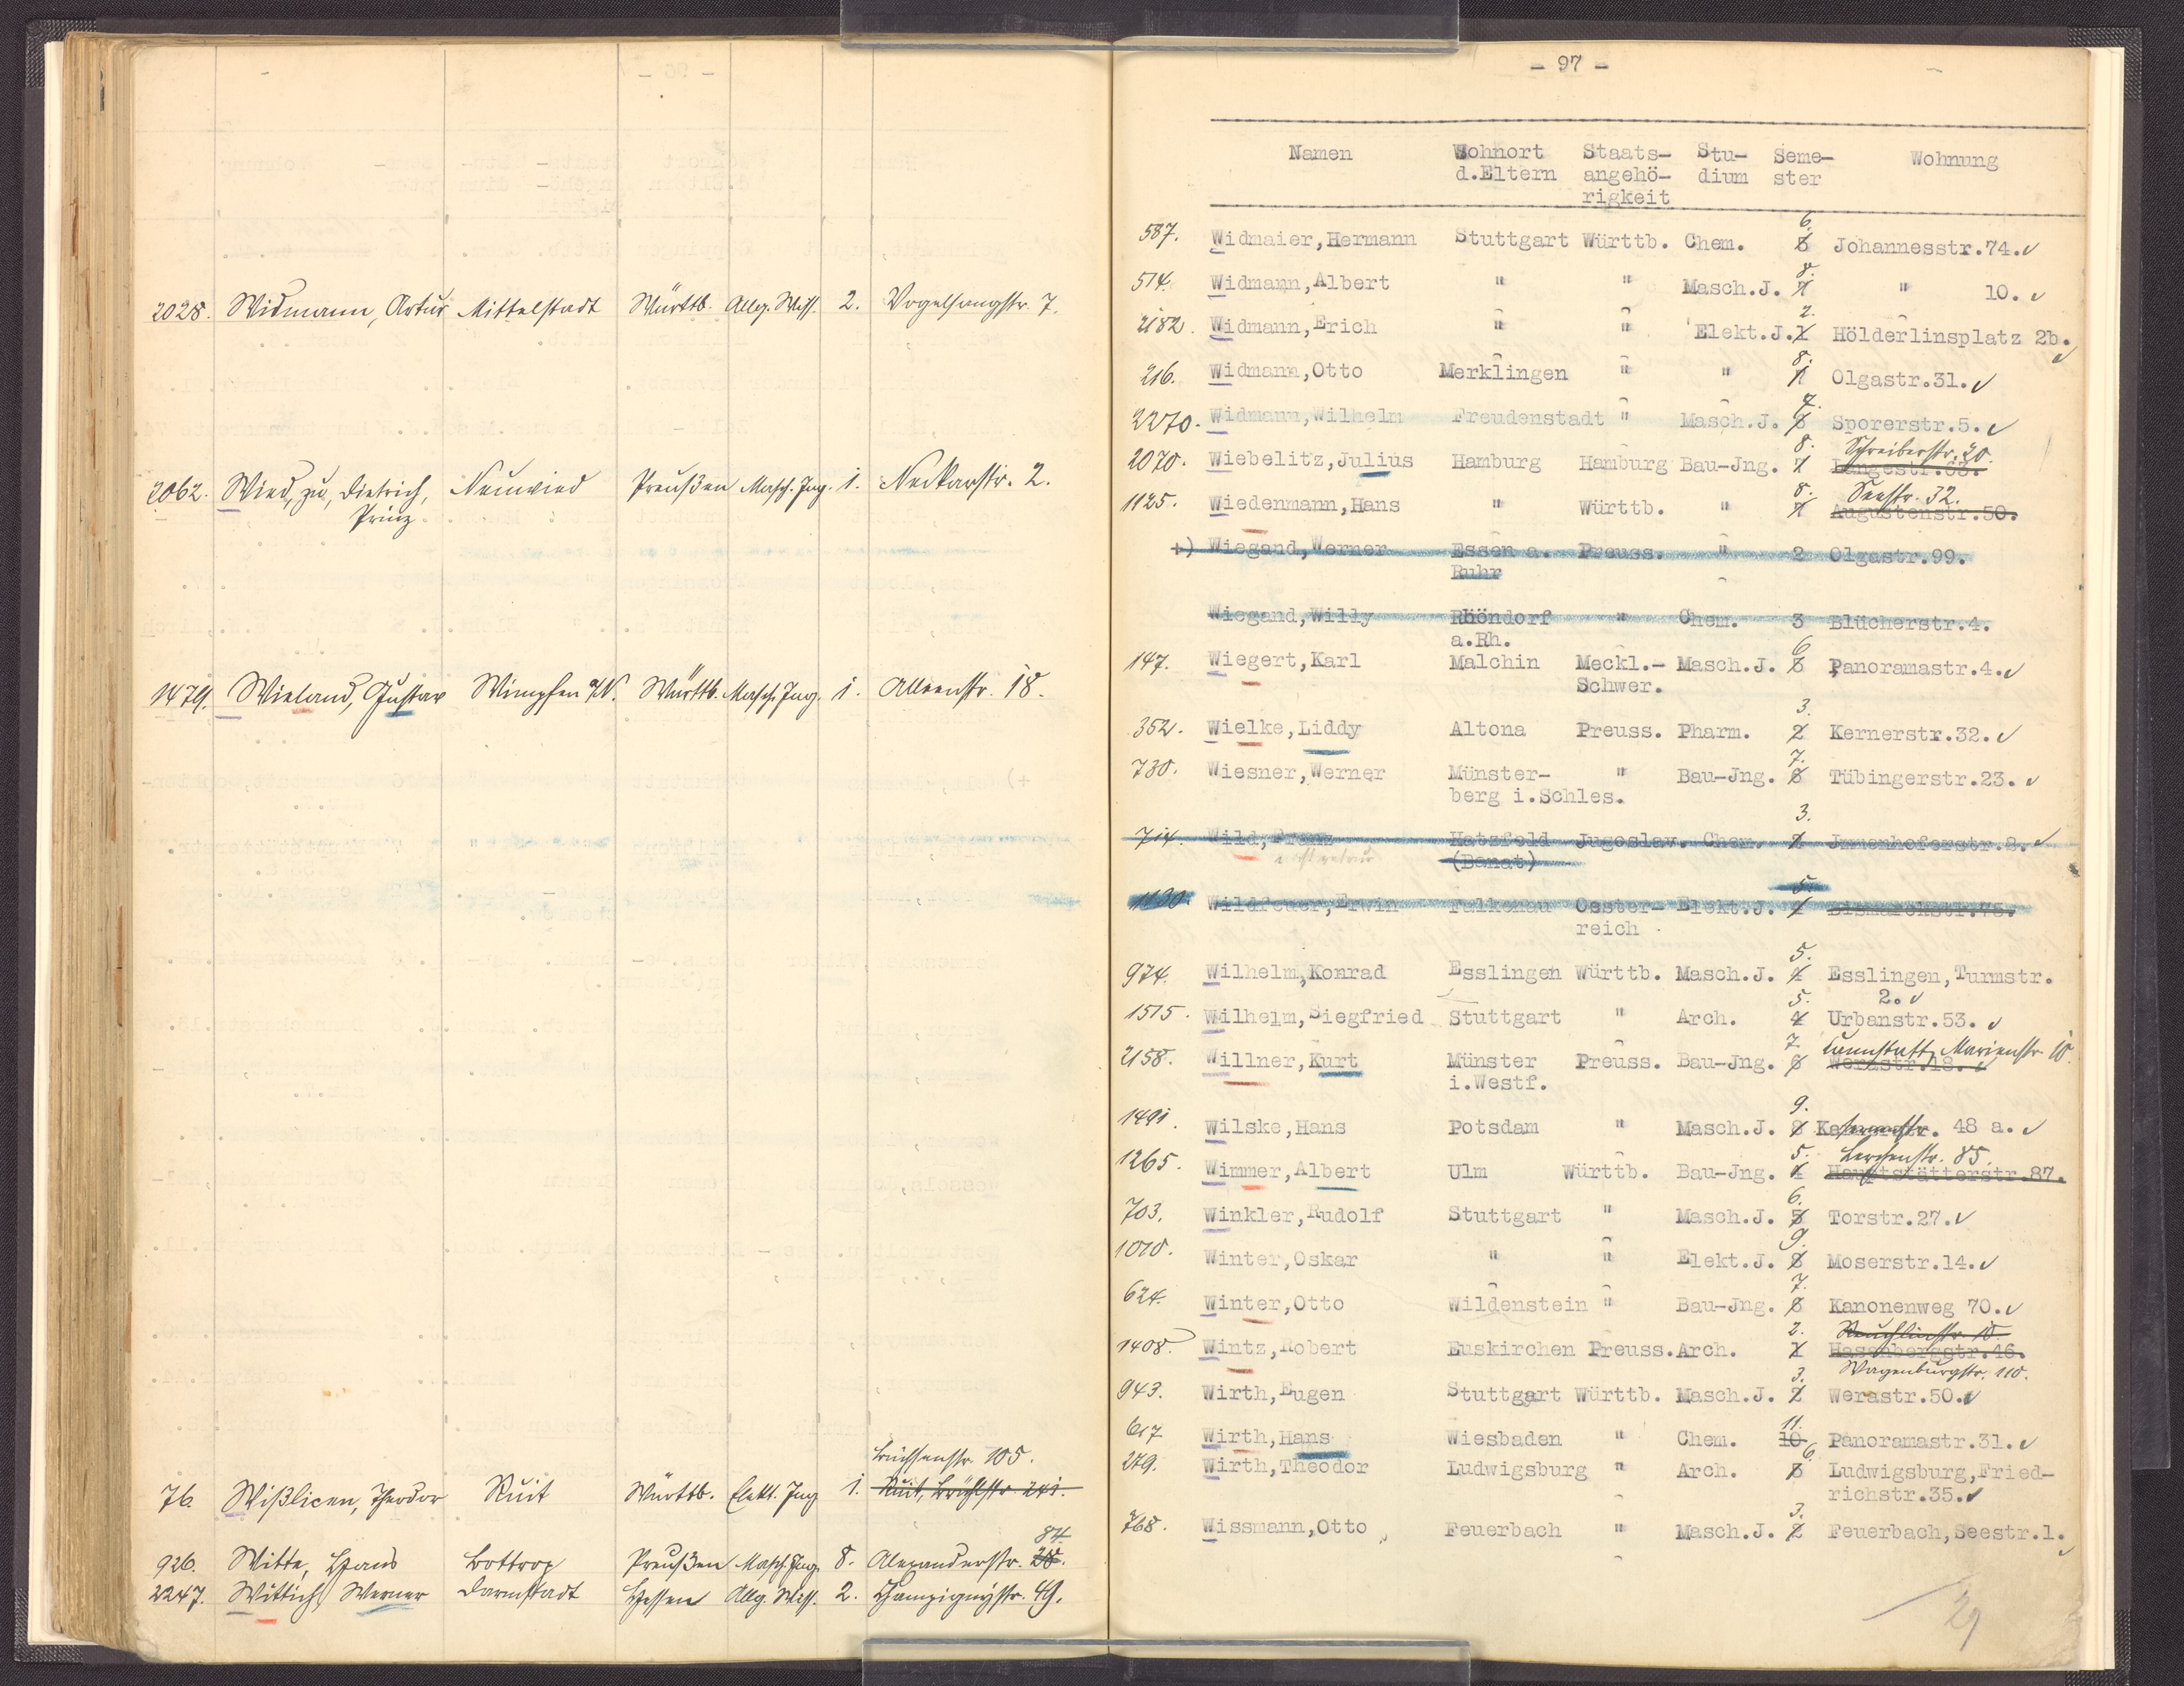 2028. Widmann, Artur Mittelstadt Württb. Allg. Wiss. 2. Vogelsangstr. 7.
2062. Wied, zu, Dietrich, Neuwied Preußen Masch. Ing. 1. Neckarstr. 2.
Prinz.
1479. Wieland, Gustav Wimpfen a/N. Württb. Masch. Ing. 1. Alleenstr. 18.
Büchsenstr. 105.
76. Wißlicen, Theodor Ruit Württb. Elekt. Ing 1. Ruit, Brühlstr 241.
84
926. Witte, Hans Bottrop Preußen Masch. Ing. 8. Alexanderstr. 28.
2247. Wittich, Werner Darmstadt Hessen Allg. Wiss. 2. Champignystr. 49.
- 97 -
Namen Wohnort Staats- Stu- Seme- Wohnung
d.Eltern angehö- dium ster
rigkeit
6.
587. Widmaier, Hermann Stuttgart Württb. Chem. 5 Johannesstr.74.
8.
514. Widmann, Albert " " Masch.J. 7 " 10.
2.
2182. Widmann, Erich " " Elekt.J. 1 Hölderlinsplatz 2b.
8.
216. Widmann, Otto Merklingen " " 7 Olgastr.31.
7.
2270. Widmann, Wilhelm Freudenstadt " Masch.J. 6 Sporerstr.5.
8. Schreiberstr. 20.
2070. Wiebelitz, Julius Hamburg Hamburg Bau-Jng. 7 Langestr.63.
8. Seestr. 32.
1125. Wiedenmann, Hans " Württb. " 7 Augustenstr.50.
+) Wiegand, Werner Essen a. Preuss. " 2 Olgastr.99.
Ruhr
Wiegand, Willy Rhöndorf " Chem. 3 Blücherstr.4.
a.Rh.
6
147. Wiegert, Karl Malchin Meckl.- Masch.J. 5 Panoramastr.4.
Schwer.
3.
352. Wielke, Liddy Altona Preuss. Pharm. 2 Kernerstr.32.
7.
730. Wiesner, Werner Münster- " Bau-Jng. 6 Tübingerstr.23.
berg i.Schles.
3.
714. Wild, Franz Hatzfeld Jugoslav. Chem. 2 Jmmenhoferstr.8.
(Banat)
5.
1130. Wildfeuer, Erwin Falkenau Oester- Elekt.J. 4 Bismarckstr.75.
reich
5.
974. Wilhelm, Konrad Esslingen Württb. Masch.J. 4 Esslingen, Turmstr.
5. 2.
1515. Wilhelm, Siegfried Stuttgart " Arch. 4 Urbanstr.53.
7. Cannstatt, Marienstr 10.
2158. Willner, Kurt Münster Preuss. Bau-Jng. 6 Werastr.18.
i.Westf.
9.
1491. Wilske, Hans Potsdam " Masch.J. 8 48 a.
5. Lerchenstr. 85.
1265. Wimmer, Albert Ulm Württb. Bau-Jng. 4 Hauptstätterstr.87.
6.
703. Winkler, Rudolf Stuttgart " Masch.J. 5 Torstr.27.
9.
1010. Winter, Oskar " " Elekt.J. 8 Moserstr.14.
7.
624. Winter, Otto Wildenstein " Bau-Jng. 6 Kanonenweg 70.
2. Reuchlinstr. 10.
1408. Wintz, Robert Euskirchen Preuss. Arch. 1 Hasenbergstr.46.
3. Wagenburgstr. 110.
943. Wirth, Eugen Stuttgart Württb. Masch.J. 2 Werastr.50.
11.
617 Wirth, Hans Wiesbaden " Chem. 10 Panoramastr.31.
6
279. Wirth, Theodor Ludwigsburg " Arch. 5 Ludwigsburg, Fried-
richstr.35.
3.
768. Wissmann, Otto Feuerbach " Masch.J. 2 Feuerbach, Seestr.1.
29